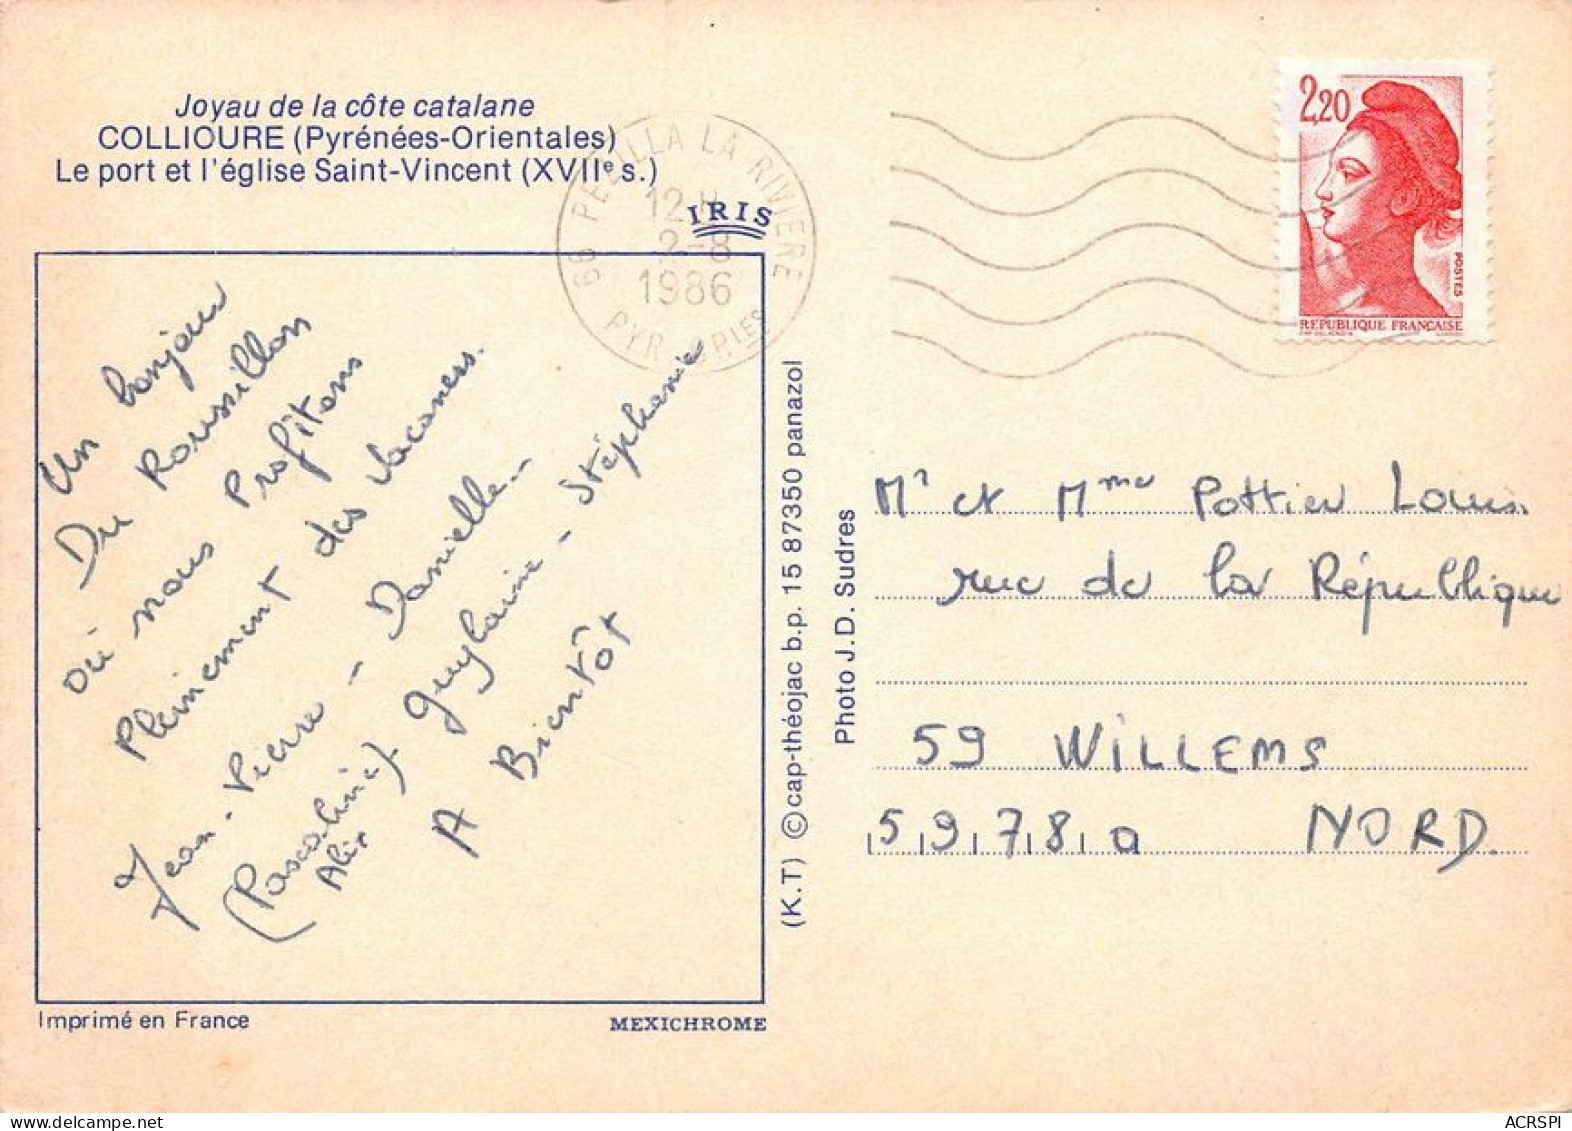 Joyau de la côte catalane
COLLIOURE (Pyrénées-Orientales)
Le port et l'église Saint-Vincent (XVIIe s.)
IRIS
66 PEZILLA LA RIVIERE
12 H
2-8
1986
PYR ORLES
2,20
POSTES
REPUBLIQUE FRANÇAISE
Un bonjour
Du Roussillon
où nous Profitons
Pleinement des vacances.
Jean-Pierre - Danielle -
(Pascaline) Guylaine - Stéphanie
Alix
A Bientôt
Imprimé en France
MEXICHROME
(K.T) © cap-théojac b.p. 15 87350 panazol
Photo J.D. Sudres
Mr et Mme Pottier Louis
rue de la République
59 WILLEMS
59780 NORD.
ACRSPI